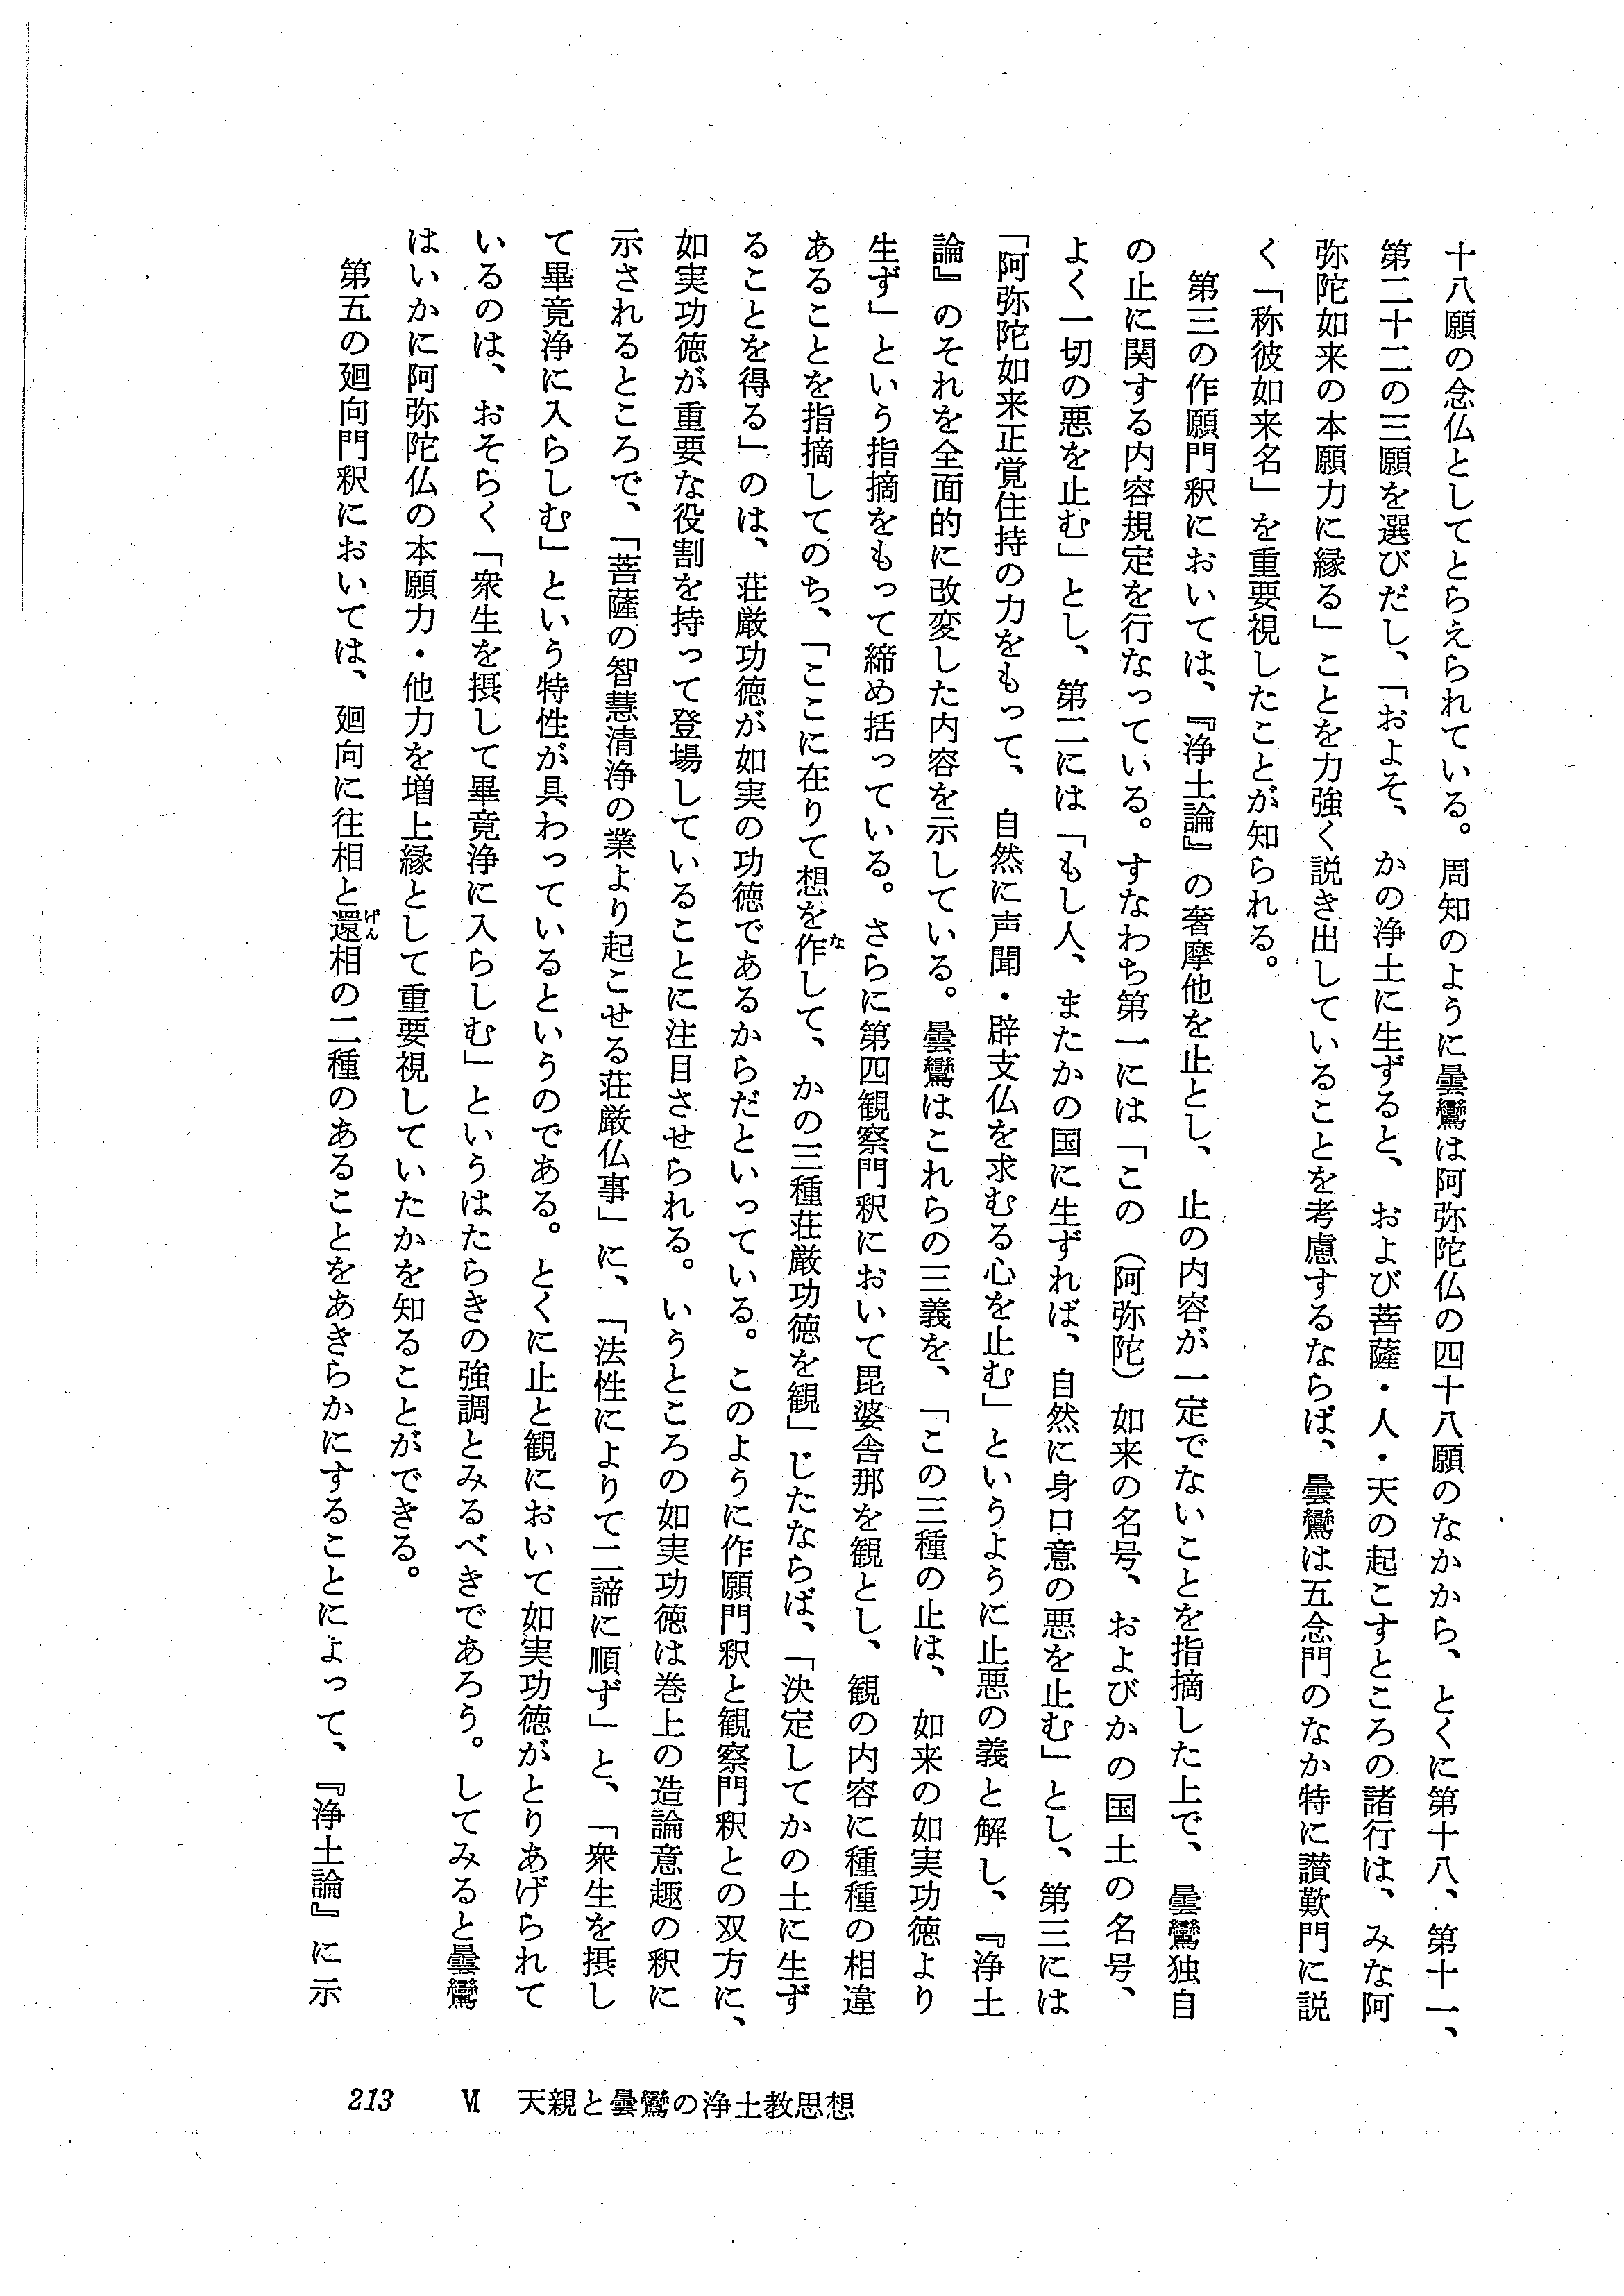 十八願の念仏としてとらえられている。周知のように曇鸞は阿弥陀仏の四十八願のなかから、とくに第十八、第十一、
第二十二の三願を選びだし、「およそ、かの浄土に生ずると、および菩薩・人・天の起こすところの諸行は、みな阿
弥陀如来の本願力に縁る」ことを力強く説き出していることを考慮するならば、曇鸞は五念門のなか特に讃歎門に説
く「称彼如来名」を重要視したことが知られる。
第三の作願門釈においては、『浄土論』の奢摩他を止とし、止の内容が一定でないことを指摘した上で、曇鸞独自
の止に関する内容規定を行なっている。すなわち第一には「この（阿弥陀）如来の名号、およびかの国土の名号、
よく一切の悪を止む」とし、第二には「もし人、またかの国に生ずれば、自然に身口意の悪を止む」とし、第三には
「阿弥陀如来正覚住持の力をもって、自然に声聞・辟支仏を求むる心を止む」というように止悪の義と解し、『浄土
論』のそれを全面的に改変した内容を示している。曇鸞はこれらの三義を、「この三種の止は、如来の如実功徳より
生ず」という指摘をもって締め括っている。さらに第四観察門釈において毘婆舎那を観とし、観の内容に種種の相違
あることを指摘してのち、「ここに在りて想を作（な）して、かの三種荘厳功徳を観」じたならば、「決定してかの土に生ず
ることを得る」のは、荘厳功徳が如実の功徳であるからだといっている。このように作願門釈と観察門釈との双方に、
如実功徳が重要な役割を持って登場していることに注目させられる。いうところの如実功徳は巻上の造論意趣の釈に
示されるところで、「菩薩の智慧清浄の業より起こせる荘厳仏事」に、「法性によりて二諦に順ず」と、「衆生を摂し
て畢竟浄に入らしむ」という特性が具わっているというのである。とくに止と観において如実功徳がとりあげられて
いるのは、おそらく「衆生を摂して畢竟浄に入らしむ」というはたらきの強調とみるべきであろう。してみると曇鸞
はいかに阿弥陀仏の本願力・他力を増上縁として重要視していたかを知ることができる。
第五の廻向門釈においては、廻向に往相と還（げん）相の二種のあることをあきらかにすることによって、『浄土論』に示
213 Ⅵ 天親と曇鸞の浄土教思想